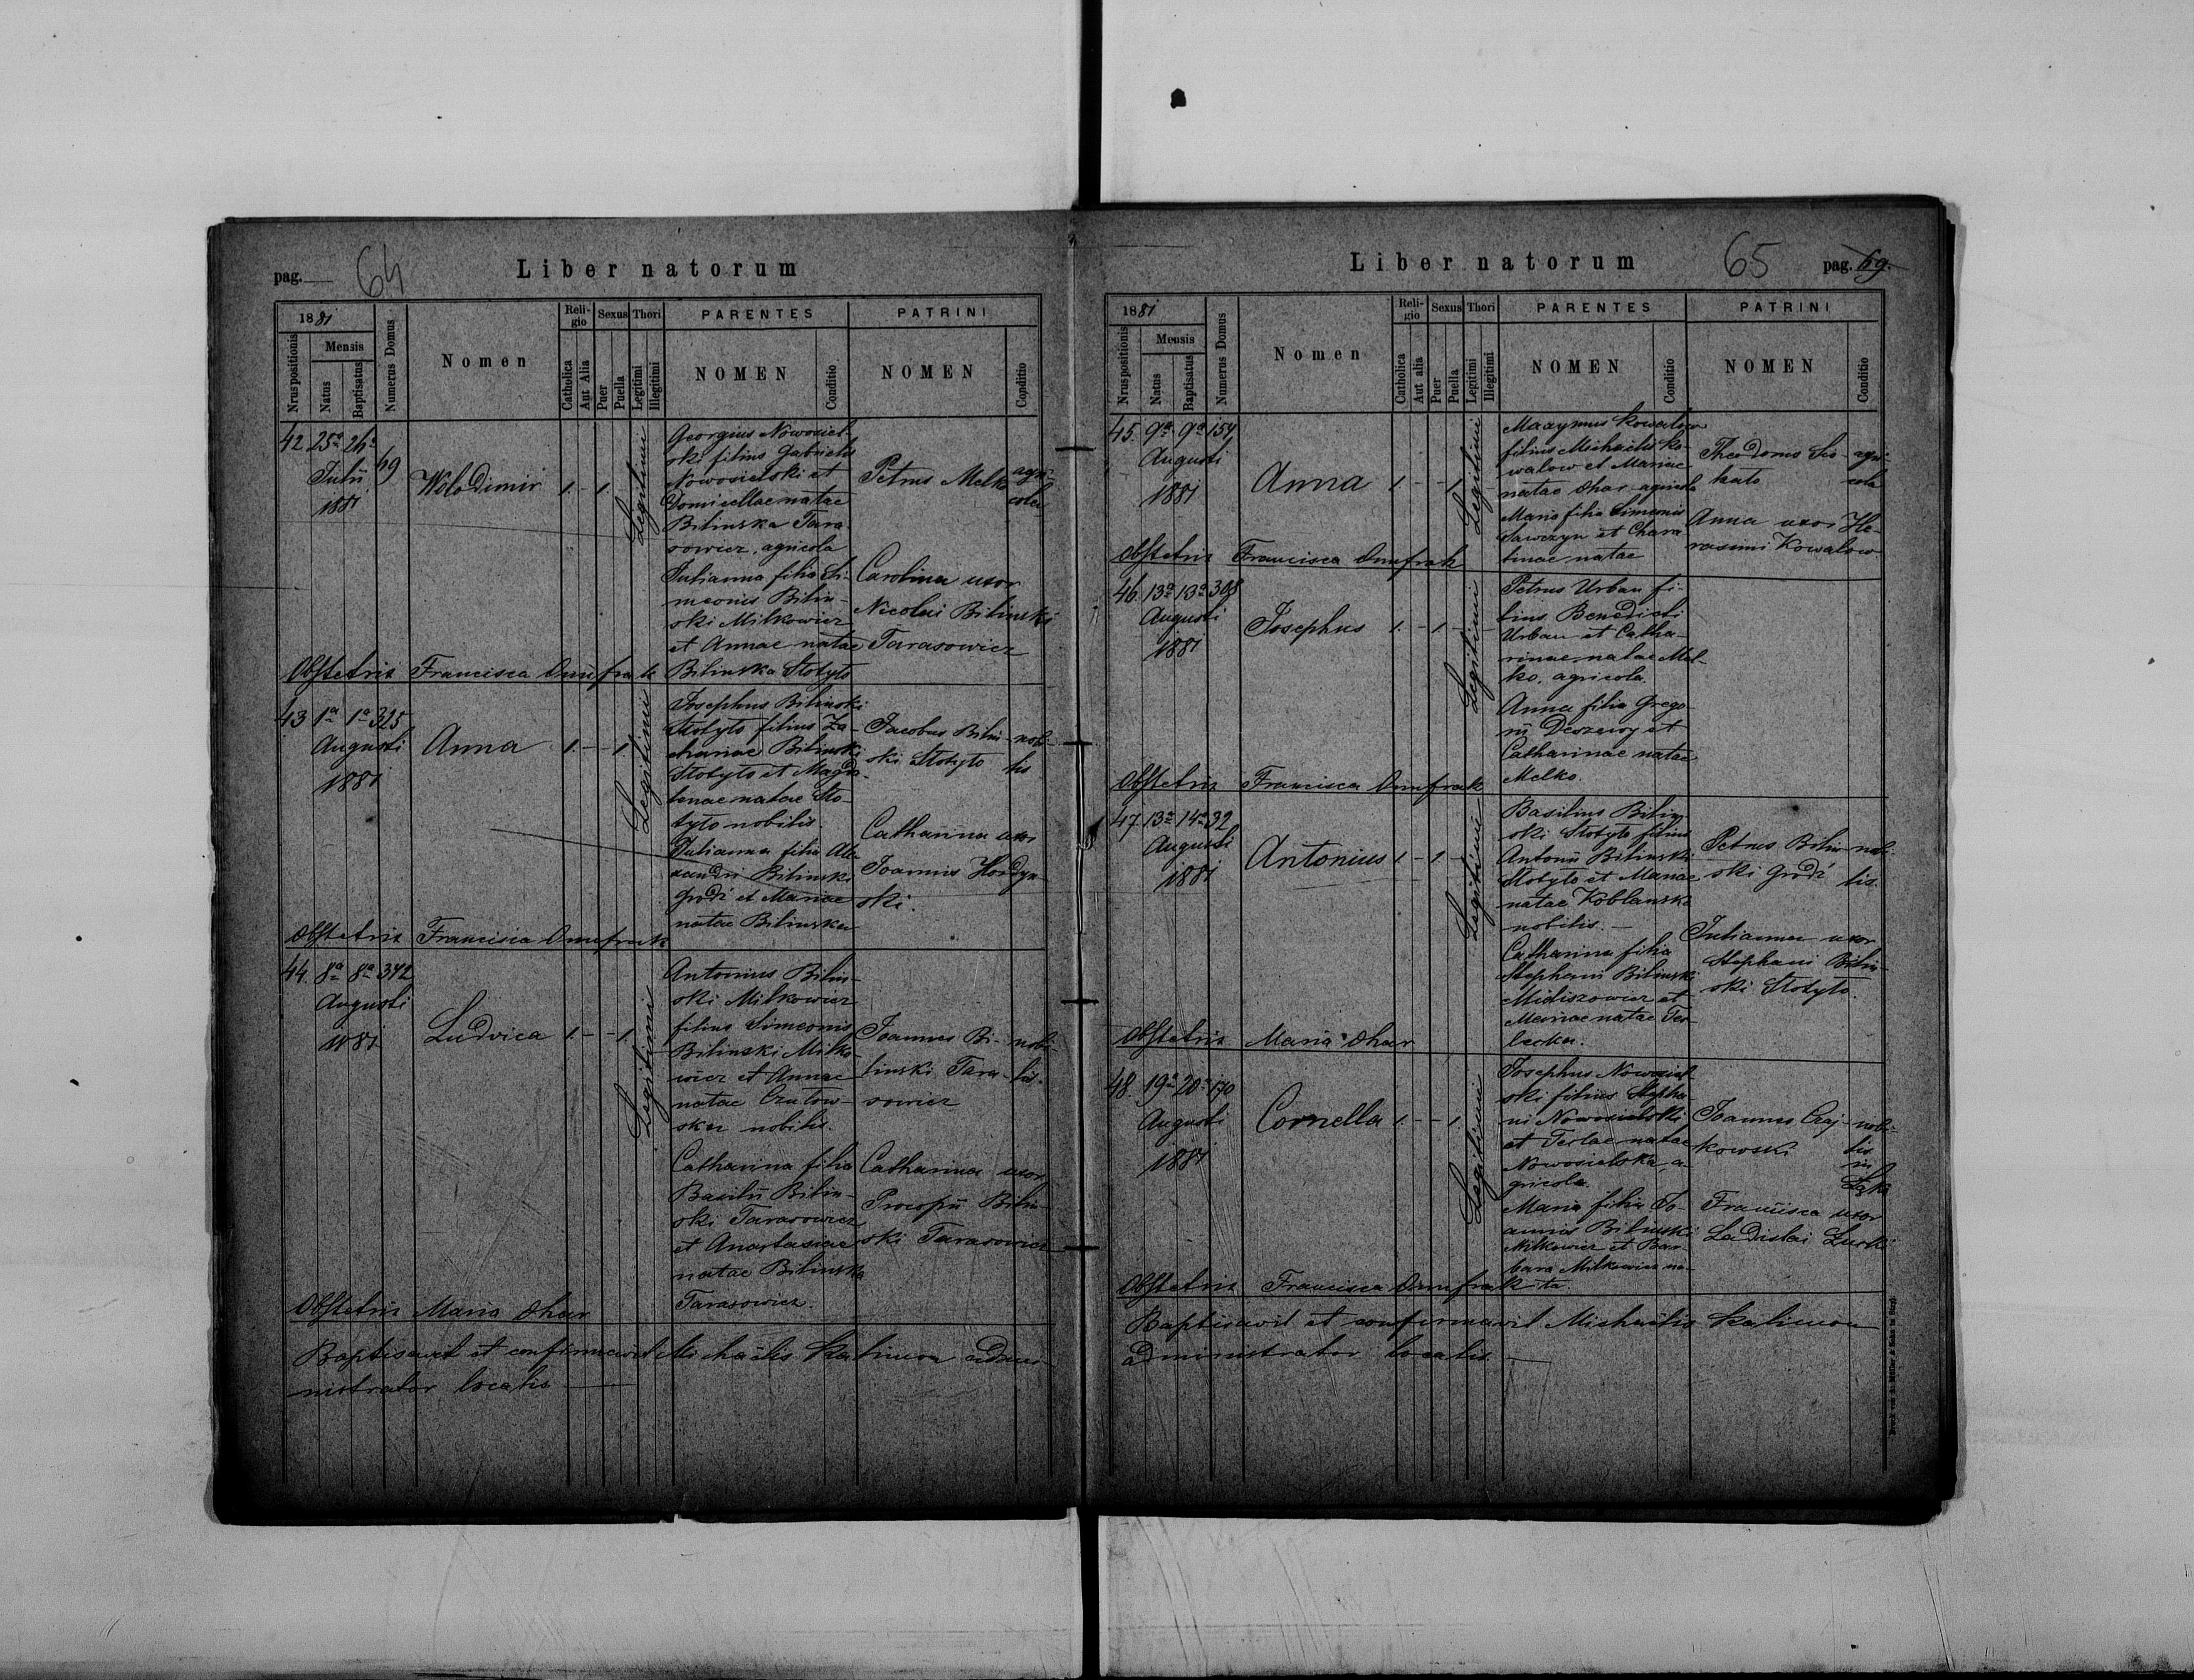 pag. 64
Liber natorum
1881
Nrus positionis
Mensis
Natus
Baptisatus
Numerus Domus
Nomen
Religio
Catholica
Aut Alia
Sexus
Puer
Puella
Thori
Legitimi
Illegitimi
PARENTES
NOMEN
Conditio
PATRINI
NOMEN
Conditio
42 25a 26a 69
Julii
1881
Wolodimir 1. - 1.
Legitimi
Georgius Nowosiel-
ski filius Gabrielis
Nowosielski et
Domicellae natae
Bilinska Tara
sowicz, agricola
Julianna filia Si-
meonis Bilin-
ski Milkowicz
et Annae natae
Bilinska Stotyto
Petrus Melko agri-
cola
Carolina uxor
Nicolai Bilinski
Tarasowicz
Obstetrix Francisca Onufrak
43 1a 1a 325
Augusti
1881
Anna 1. - - 1.
Legitimi
Josephus Bilinski
Stotyto filius Za-
chariae Bilinski
Stotyto et Magda-
lenae natae Sto-
tyto nobilis.
Julianna filia Ale-
xandri Bilinski
Grodź et Mariae
natae Bilinska
Jacobus Bilin- nobi-
ski Stotyto lis
Catharina uxor
Joannis Hordyn-
ski.
Obstetrix Francisca Onufrak
44. 8a 8a 342
Augusti
1881
Ludvica 1. - - 1.
Legitimi
Antonius Bilin-
ski Milkowicz
filius Simeonis
Bilinski Milko-
wicz et Annae
natae Czutow-
ska nobilis.
Catharina filia
Basilii Bilin-
ski Tarasowicz
et Anastasiae
natae Bilinska
Tarasowicz.
Joannes Bi- nobi-
linski Tara- lis.
sowicz
Catharina uxor
Procopii Bilin-
ski Tarasowicz
Obstetrix Maria Ohar
Baptisavit et confirmavit Michaëlis Kalimon admi-
nistrator localis
Liber natorum
65 pag. 69.
1881
Nrus positionis
Mensis
Natus
Baptisatus
Numerus Domus
Nomen
Religio
Catholica
Aut alia
Sexus
Puer
Puella
Thori
Legitimi
Illegitimi
PARENTES
NOMEN
Conditio
PATRINI
NOMEN
Conditio
45. 9a 9a 154
Augusti
1881
Anna 1. - - 1.
Legitimi
Maxymus Kowalow
filius Michaelis Ko-
walow et Mariae
natae Ohar agricola
Maria filia Simeonis
Sawczyn et Chara
tinae natae
Theodorus agri-
cola
Anna uxor He-
rasimi Kowalow
Obstetrix Francisca Onufrak
46. 13a 13a 308
Augusti
1881
Josephus 1. - 1. -
Legitimi
Petrus Urban fi-
lius Benedicti
Urban et Catha-
rinae natae Mel-
ko, agricola.
Anna filia Grego-
rii Deszewy et
Catharinae natae
Melko.
Obstetrix Francisca Onufrak
47. 13a 14a 32
Augusti
1881
Antonius 1. - 1. -
Legitimi
Basilius Bilin-
ski Stotyto filius
Antonii Bilinski
Stotyto et Mariae
natae Koblanska
nobilis.
Catharina filia
Stephani Bilinski
Midiszowicz et
Mariae natae Ter-
lecka.
Petrus Bilin- nobi-
ski Grodź lis.
Julianna uxor
Stephani Bilin-
ski Stotyto.
Obstetrix Maria Ohar
48. 19a 20a 170
Augusti
1881
Cornella 1. - - 1.
Legitimi
Josephus Nowosiel-
ski filius Stepha-
ni Nowosielski
et Teclae natae
Nowosielska, a-
gricola.
Maria filia Jo-
annis Bilinski
Milkowicz et Bar-
bara Milkowicz na-
ta.
Joannes Czaj- nobi-
kowski lis
in
Łąka
Francisca uxor
Ladislai
Obstetrix Francisca Onufrak
Baptisavit et confirmavit Michaëlis Kalimon
administrator localis.